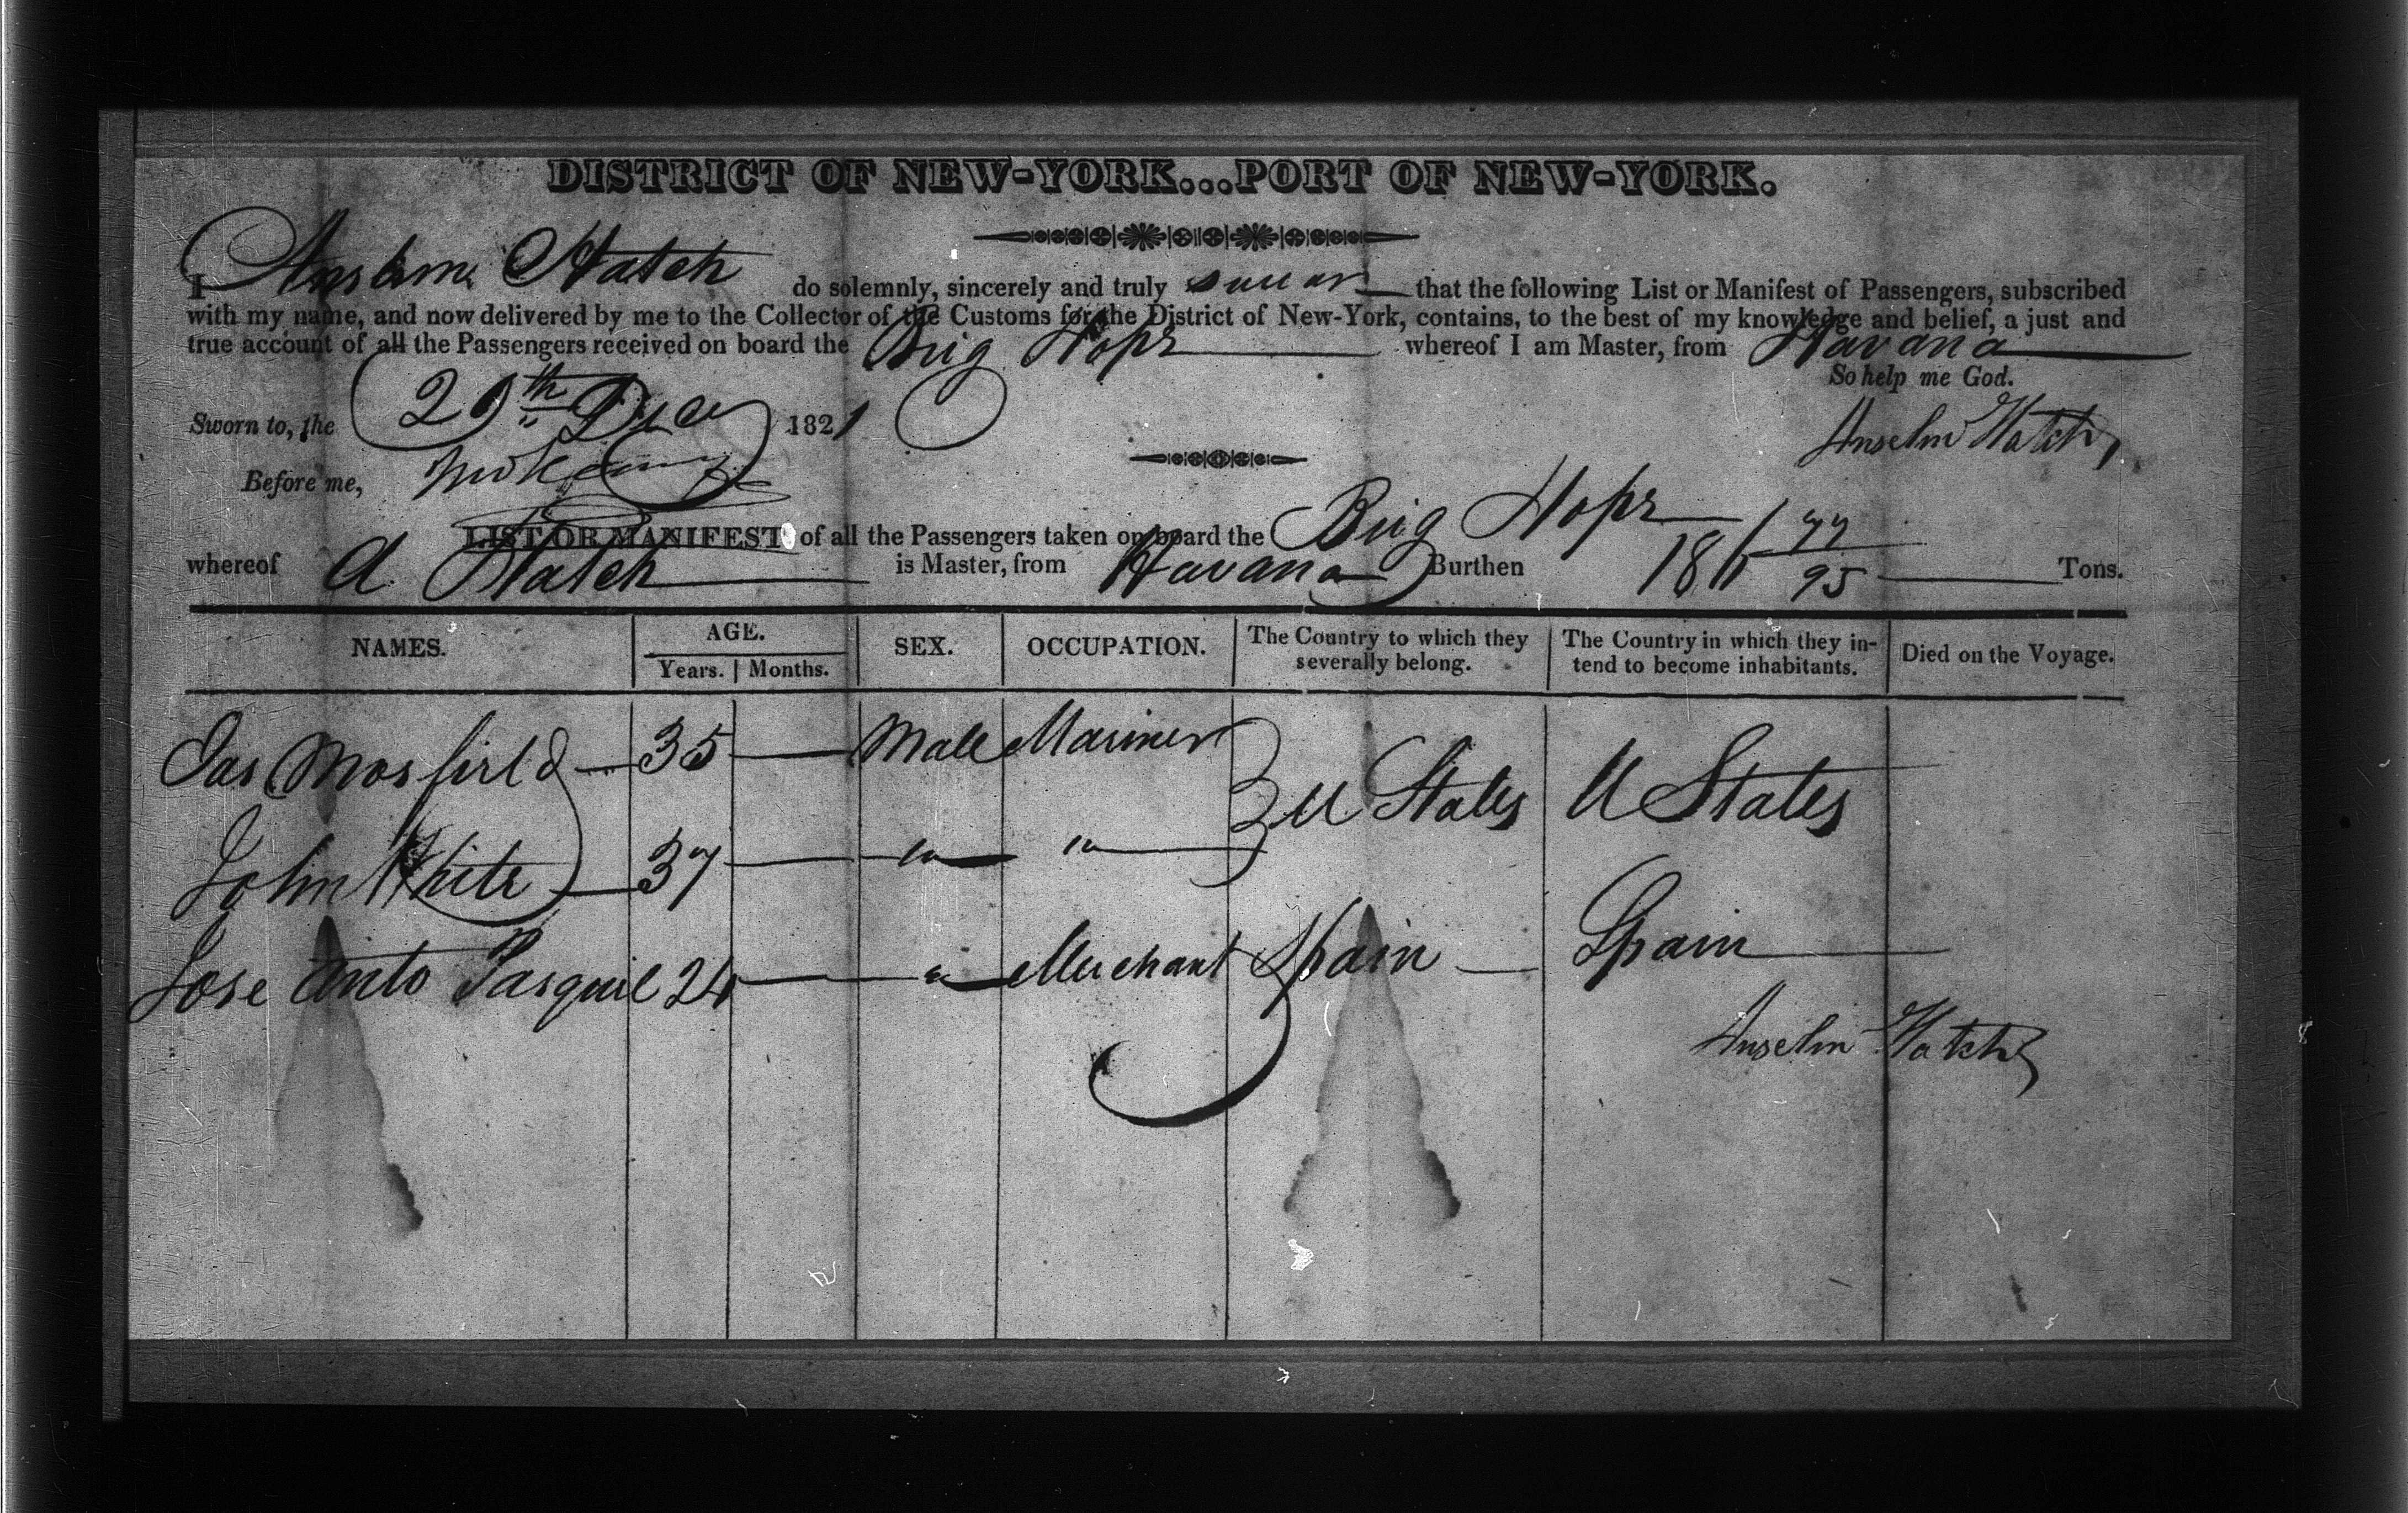 DISTRICT OF NEW-YORK...PORT OF NEW-YORK.
I Anselm Hatch do solemnly, sincerely and truly swear that the following List or Manifest of Passengers, subscribed
with my name, and now delivered by me to the Collector of the Customs for the District of New-York, contains, to the best of my knowledge and belief, a just and
true account of all the Passengers received on board the Brig Hope whereof I am Master, from Havana
So help me God.
Sworn to, the 29th Dec 1821
Anselm Hatch
Before me,
LIST OR MANIFEST of all the Passengers taken on board the Brig Hope
whereof A Hatch is Master, from Havana Burthen 181 77/95 Tons.
NAMES. AGE. Years. Months. SEX. OCCUPATION. The Country to which they severally belong. The Country in which they intend to become inhabitants. Died on the Voyage.
Jas Mosfield 35 Male Mariner
U States U States
John White 37 " "
Jose Anto Pasquil 24 " Merchant Spain Spain
Anselm Hatch